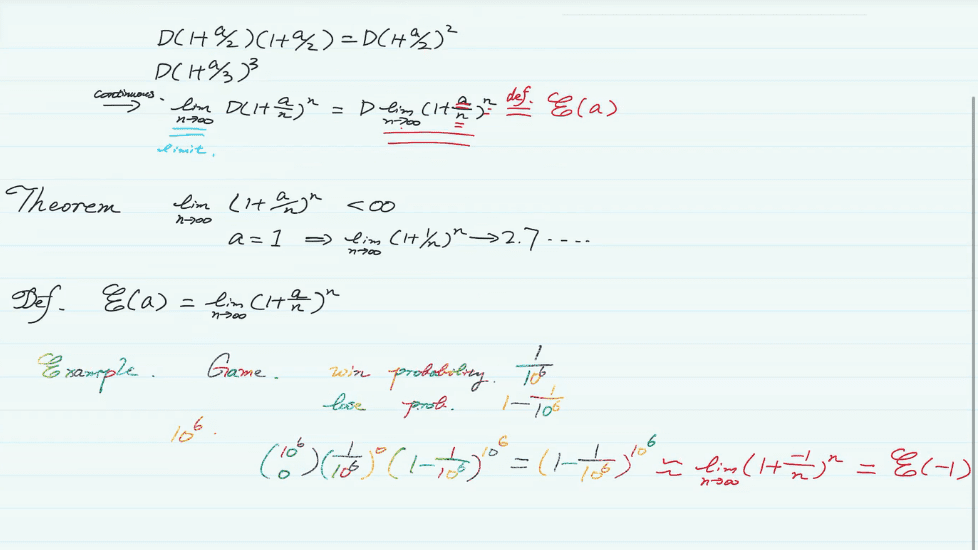 D(1+a/2)(1+a/2) = D(1+a/2)²
D(1+a/3)³
continuous. → lim n→∞ D(1+a/n)ⁿ = D lim n→∞ (1+a/n)ⁿ def. = ℰ(a)
limit.
Theorem lim n→∞ (1+a/n)ⁿ < ∞
a = 1 ⇒ lim n→∞ (1+1/n)ⁿ → 2.7 ....
Def. ℰ(a) = lim n→∞ (1+a/n)ⁿ
Example. Game. win probability. 1/10⁶
lose prob. 1-1/10⁶
10⁶.
(10⁶ 0)(1/10⁶)⁰(1-1/10⁶)^10⁶ = (1-1/10⁶)^10⁶ ≈ lim n→∞ (1+-1/n)ⁿ = ℰ(-1)